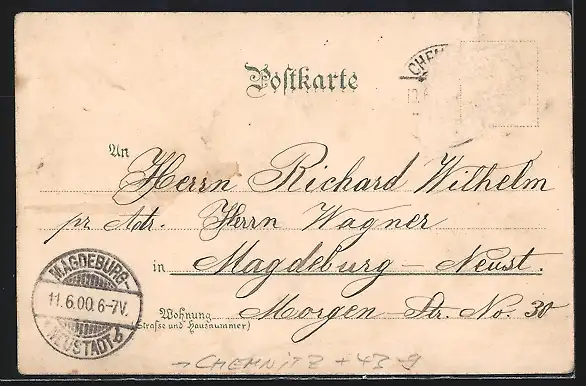 CHEM
Postkarte
An
Herrn Richard Wilhelm
pr Adr. Herrn Wagner
in Magdeburg-Neust.
MAGDEBURG-
11.6.00.6-7V.
NEUSTADT b
Wohnung Morgen Str. No. 30
(Strasse und Hausnummer)
CHEMNITZ + 43-9